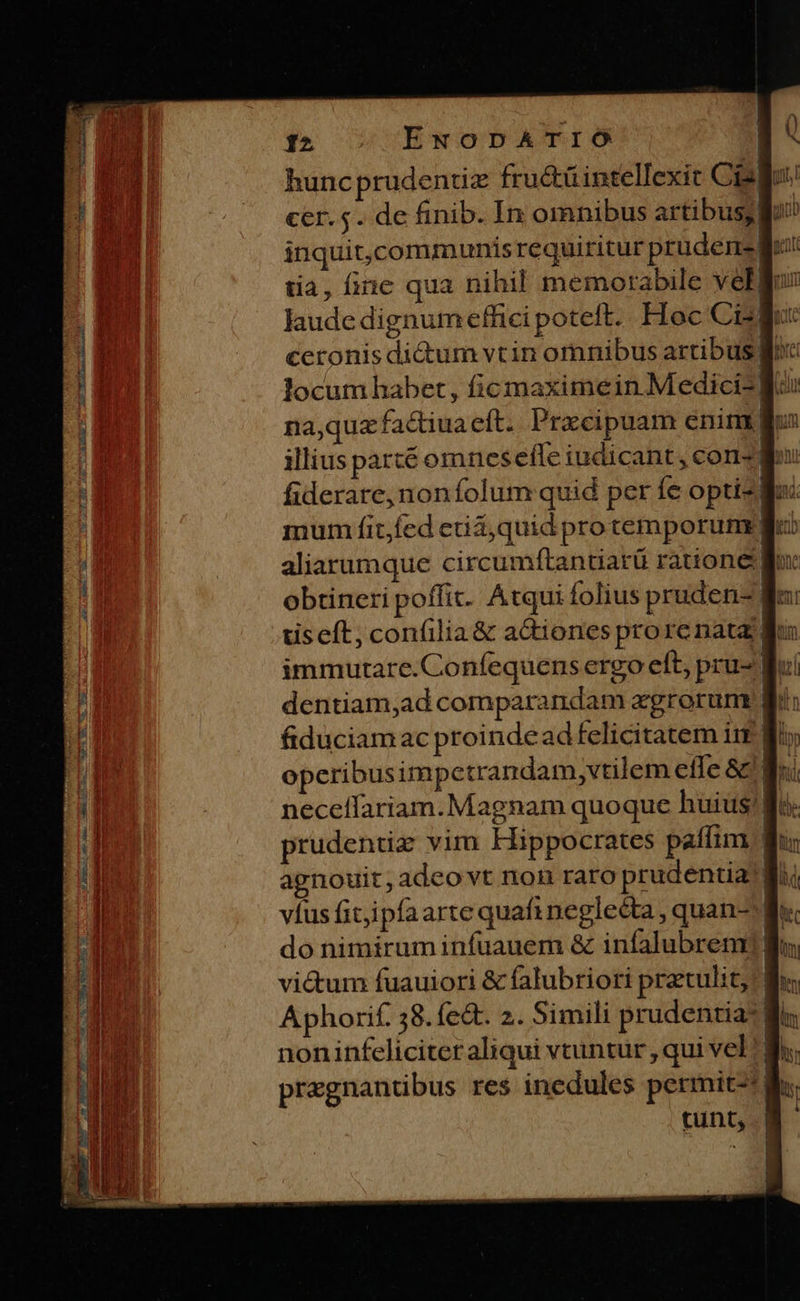 12 ENODATIO
hunc prudentiæ fructũ intellexit Ci-
cer. 5. de finib. In omnibus artibus,
inquit, communis requiritur pruden-
tia, ſine qua nihil memorabile vel
laude dignum effici poteſt. Hoc Ci-
ceronis dictum vt in omnibus artibus
locum habet, ſic maxime in Medici-
na, quæ factiua eſt. Præcipuam enim
illius partẽ omnes eſſe iudicant, con-
ſiderare, non ſolum quid per ſe opti-
mum ſit, ſed etiã, quid pro temporum
aliarumque circumſtantiarũ ratione
obtineri poſſit. Atqui ſolius pruden-
tis eſt, conſilia & actiones pro re nata
immutare. Conſequens ergo eſt, pru-
dentiam, ad comparandam ægrorum
fiduciam ac proinde ad felicitatem in
operibus impetrandam, vtilem eſſe &
neceſſariam. Magnam quoque huius
prudentiæ vim Hippocrates paſſim
agnouit, adeo vt non raro prudentia
vſus ſit, ipſa arte quaſi neglecta, quan-
do nimirum inſuauem & inſalubrem
victum ſuauiori & ſalubriori prætulit,
Aphoriſ. 38. ſect. 2. Simili prudentia
non infeliciter aliqui vtuntur, qui vel
prægnantibus res inedules permit-
tunt,